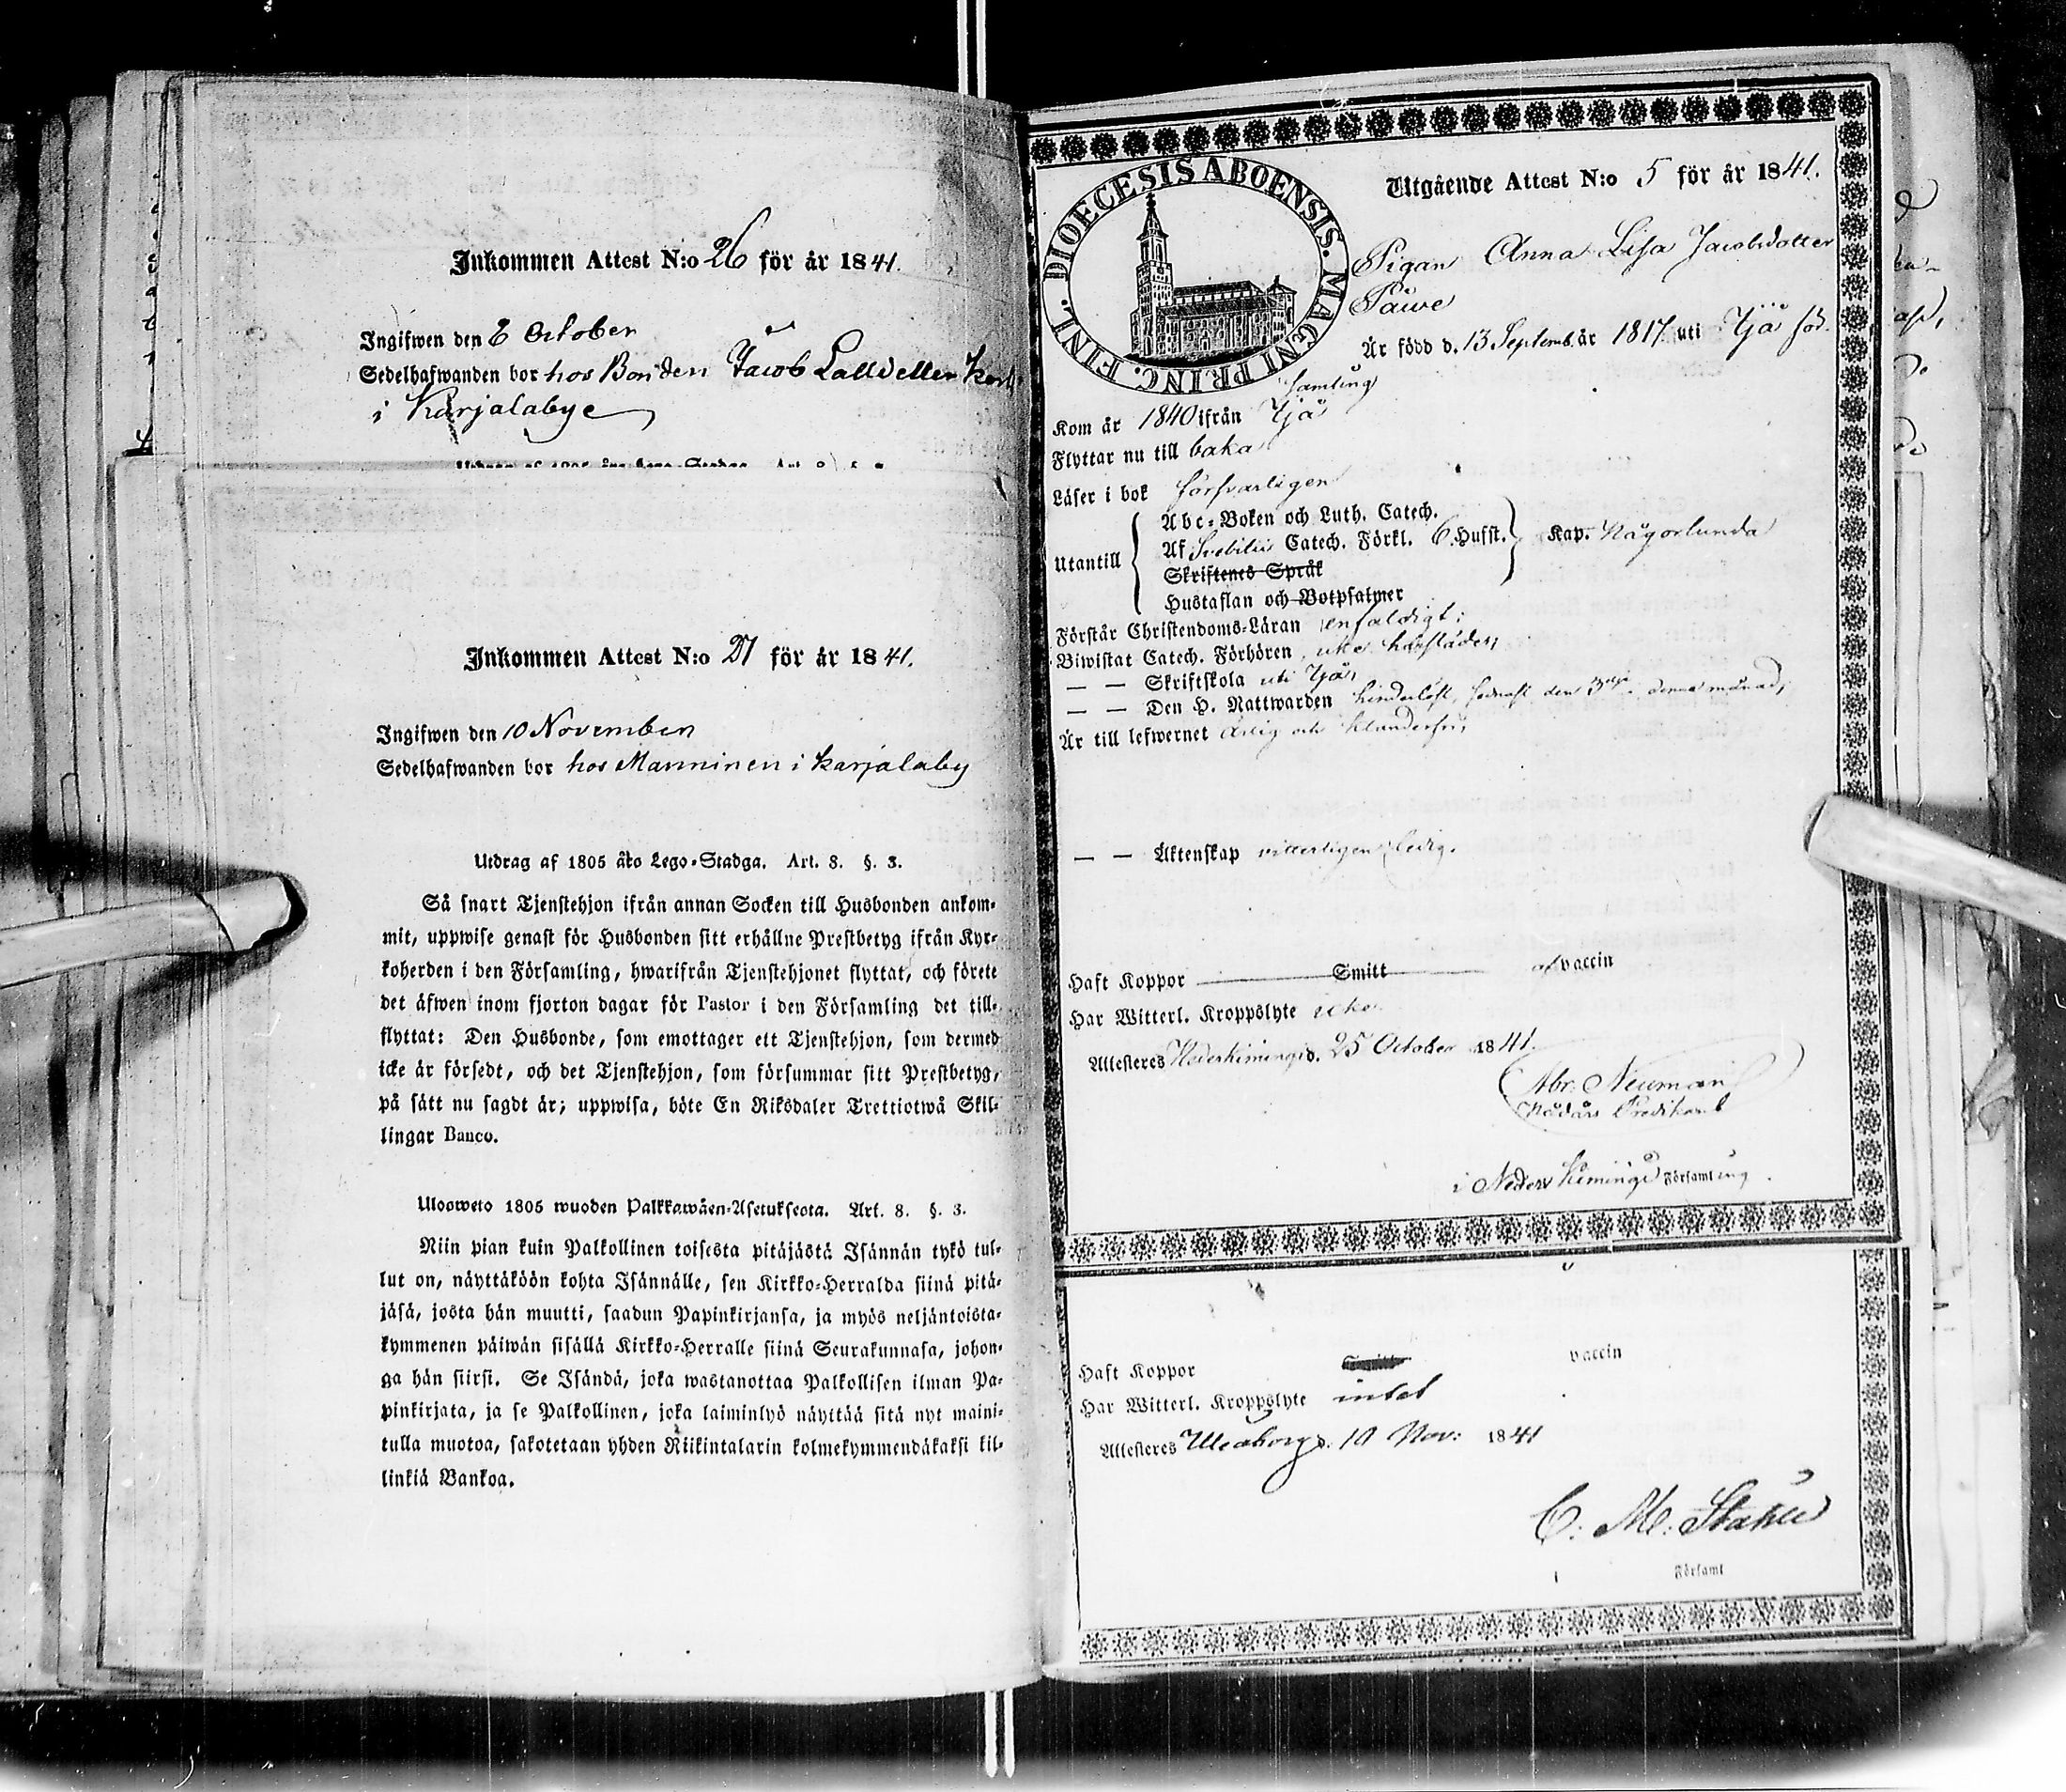 Inkommen Attest N:o 26 för år 1841.
Ingifwen den 8 October
Sedelhafwanden bor hos Bonden Jacob Lall eller
i Karjalabye
Inkommen Attest N:o 27 för år 1841.
Ingifwen den 10 November
Sedelhafwanden bor hos Manninen i Karjalaby
Utdrag af 1805 års Lego-Stadga. Art. 8. §. 3.
Så snart Tjenstehjon ifrån annan Socken till Husbonden ankom-
mit, uppwise genast för Husbonden sitt erhållne Prestbetyg ifrån Kyr-
koherden i den Församling, hwarifrån Tjenstehjonet flyttat, och förete
det äfwen inom fjorton dagar för Pastor i den Församling det till-
flyttat: Den Husbonde, som emottager ett Tjenstehjon, som dermed
icke är försedt, och det Tjenstehjon, som försummar sitt Prestbetyg,
på sätt nu sagdt är; uppwisa, böte En Riksdaler Trettiotwå Skil-
lingar Banco.
Uloosweto 1805 wuoden Palkkawäen-Asetuksesta. Art. 8. §. 3.
Niin pian kuin Palkollinen toisesta pitäjästä Isännän tykö tul-
lut on, näyttäköön kohta Isännälle, sen Kirkko-Herralda siinä pitä-
jäsä, josta hän muutti, saadun Papinkirjansa, ja myös neljäntoista-
kymmenen päiwän sisällä Kirkko-Herralle siinä Seurakunnasa, johon-
ga hän siirsi. Se Isändä, joka wastanottaa Palkollisen ilman Pa-
pinkirjata, ja se Palkollinen, joka laiminlyö näyttää sitä nyt maini-
tulla muotoa, sakotetaan yhden Riikintalarin kolmekymmendäkaksi kil-
linkiä Bankoa.
FINL. DIOECESIS ABOENSIS. MAGNI PRINC.
Utgående Attest N:o 5 för år 1841.
Pigan Anna Lisa Jacobsdotter
Päwe
Är född d. 13 Septemb. år 1817 uti Ijä för
samling
Kom år 1840 ifrån Ijä
Flyttar nu till baka
Läser i bok försvarligen
Utantill
Abc-Boken och Luth. Catech.
Af Svebilii Catech. Förkl. 6 Hufst. Kap. Någorlunda
Skriftenes Språk
Hustaflan och Botpsalmer
Förstår Christendoms-Läran enfaldigt;
Biwistat Catech. Förhören
— — Skriftskola uti Ijä,
— — Den H. Nattwarden hinderlöst, sednast den denna månad,
Är till lefwernet ärlig och klanderfri,
— — Äktenskap vitterligen ledig.
Haft Koppor Smitt af vaccin
Har Witterl. Kroppslyte icke.
Attesteres Nederkimingi d. 25 October 1841.
Abr. Neuman
Nådårs Predikant
i Neder Kimingi Församling.
Haft Koppor vaccin
Har Witterl. Kroppslyte intet
Attesteres Uleåborg d. 10 Nov: 1841
C. M. Ståhle
i Församl